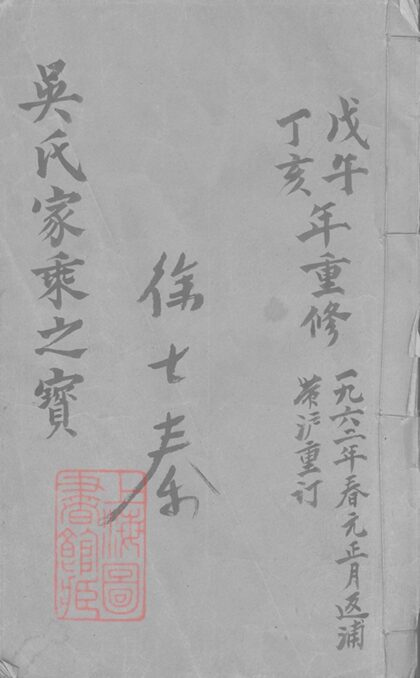 戊午
丁亥
年重修
一九六二年春元正月返浦
带沪重订
徐
吳氏家乘之寶
上海圖
書館藏